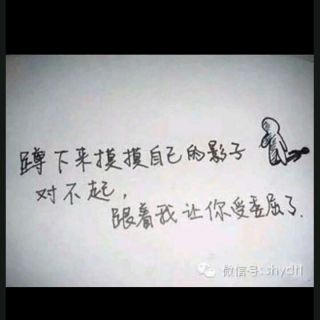 蹲下来摸摸自己的影子
对不起，
跟着我让你受委屈了.
微信号:shydfl